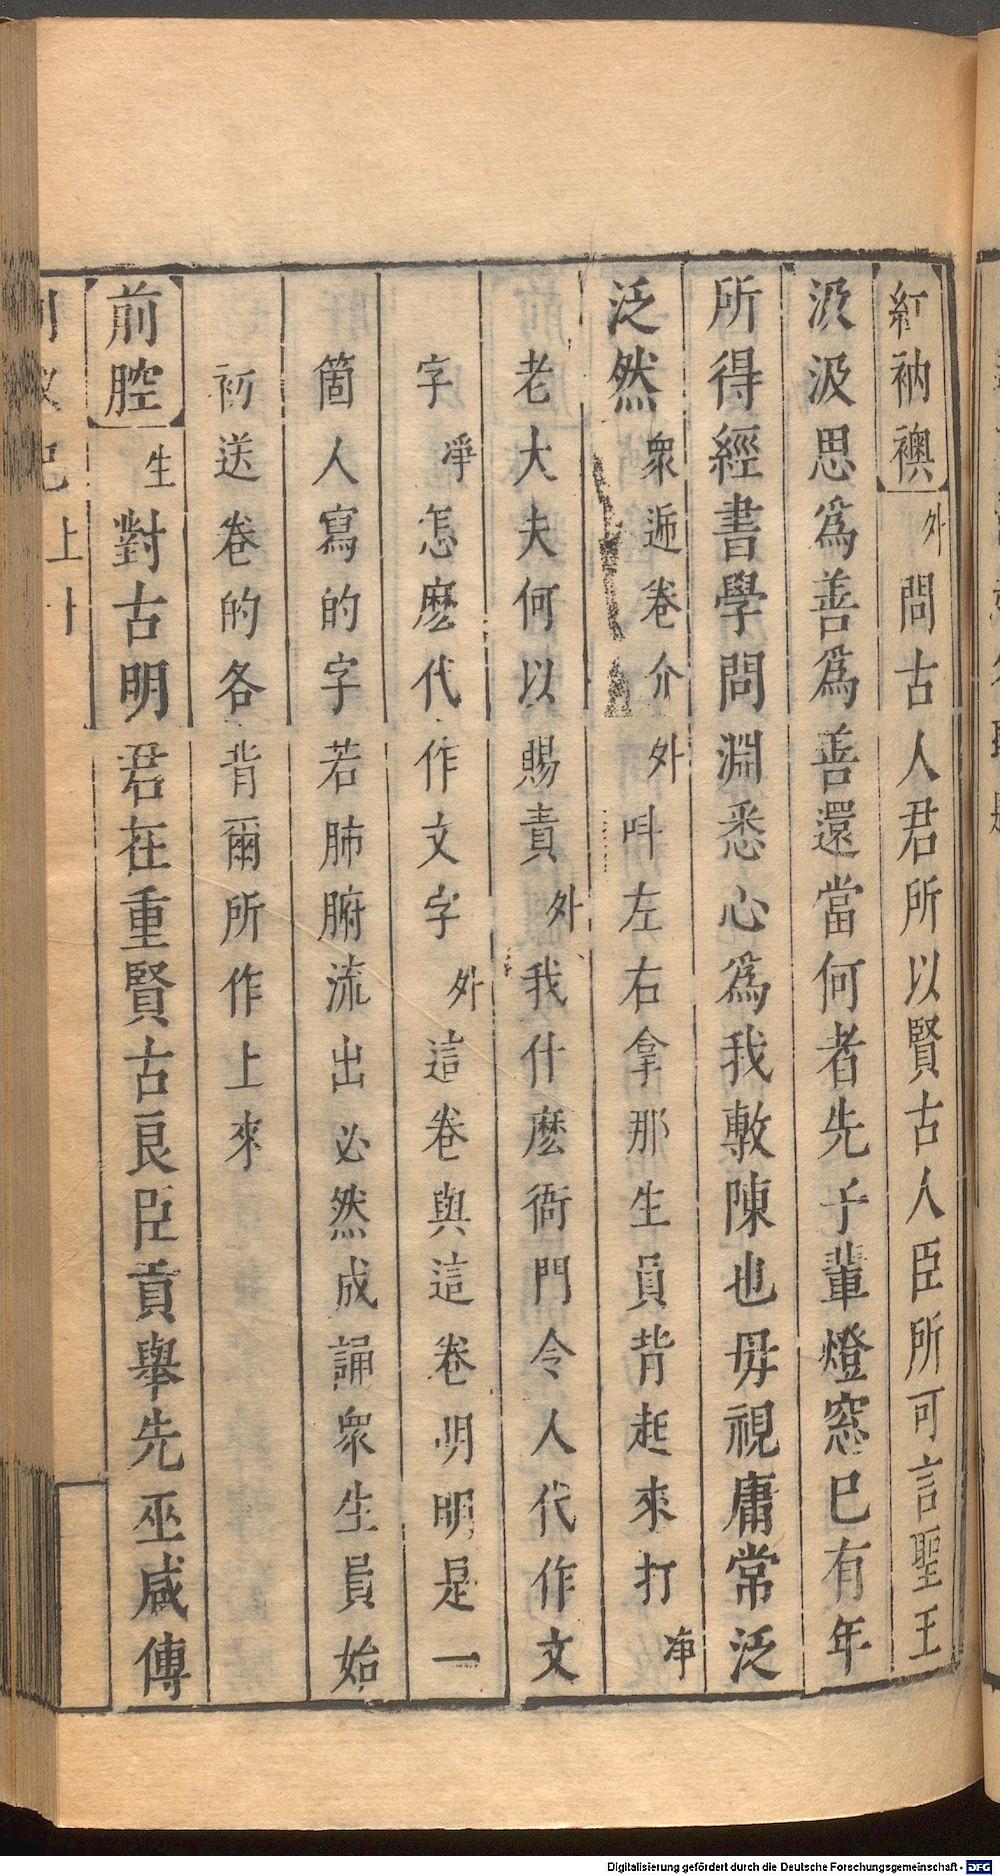 紅衲襖外問古人君所以賢古人臣所可言聖王
汲汲思爲善爲善還當何者先子輩燈窓已有年
所得經書學問淵悉心爲我敷陳也毋視庸常泛
泛然衆遞卷介外呌左右拿那生員背起來打凈
老大夫何以賜責外我什麽衙門令人代作文
字凈怎麽代作文字外這卷與這卷明明是一
箇人寫的字若肺腑流出必然成誦衆生員始
初送卷的各背爾所作上來
前腔生對古明君在重賢古良臣貢舉先巫咸傳
上
Digitalisierung gefördert durch die Deutsche Forschungsgemeinschaft - DFG